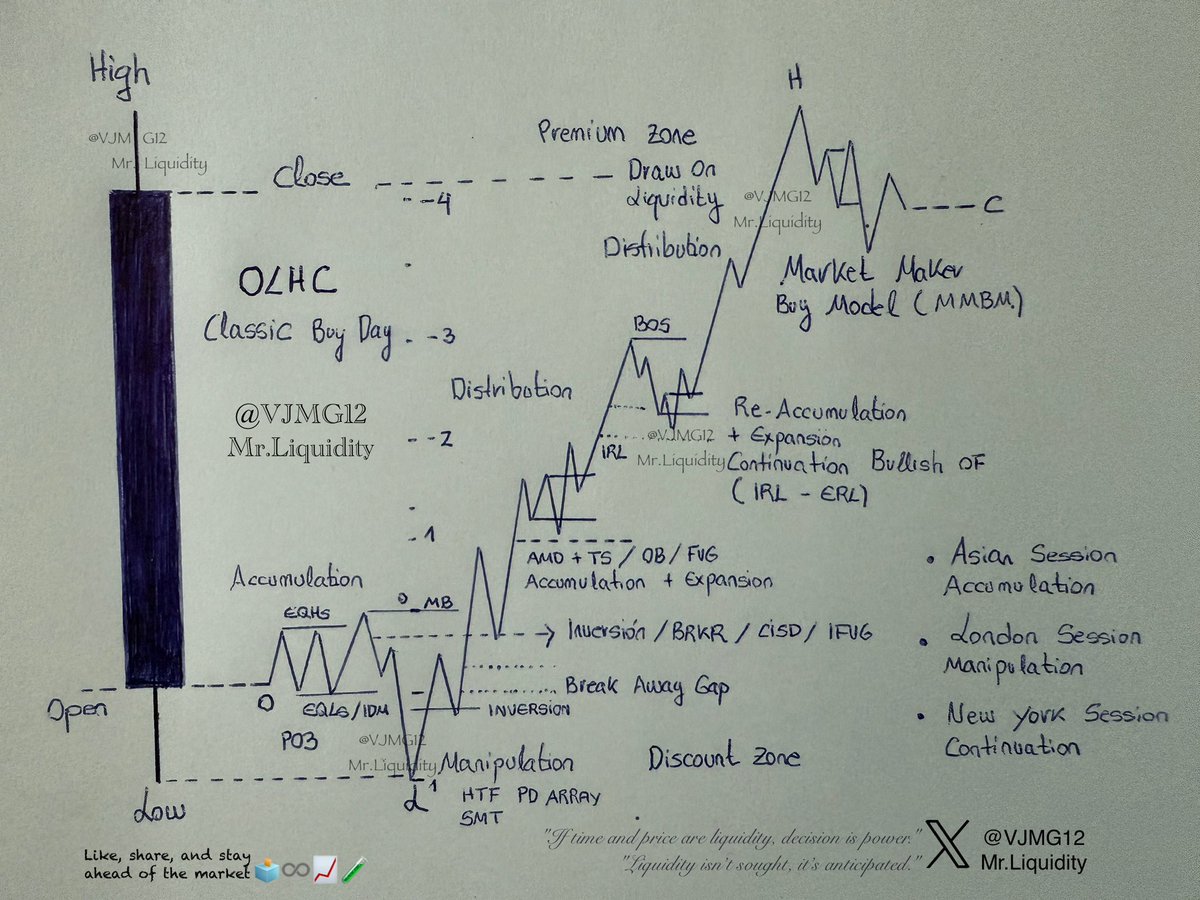 High
@VJMG12
Mr. Liquidity
Close
-4
Premium Zone
Draw On
Liquidity
H
@VJMG12
Mr.Liquidity
C
Distribution
Market Maker
Buy Model (MMBM.)
OLHC
Classic Buy Day
-3
BOS
@VJMG12
Mr.Liquidity
Distribution
-2
IRL
@VJMG12
Mr.Liquidity
Re-Accumulation
+ Expansion
Continuation Bullish OF
(IRL - ERL)
-1
AMD + TS / OB / FVG
Accumulation + Expansion
Accumulation
EQHs
0
MB
Inversión / BRKR / CISD / IFVG
Break Away Gap
INVERSION
Open
O
EQLs/IDM
PO3
@VJMG12
Mr.Liquidity
Manipulation
Discount Zone
Low
L
1
HTF PD ARRAY
SMT
• Asian Session
Accumulation
• London Session
Manipulation
• New York Session
Continuation
Like, share, and stay
ahead of the market
"If time and price are liquidity, decision is power."
"Liquidity isn't sought, it's anticipated."
X @VJMG12
Mr.Liquidity